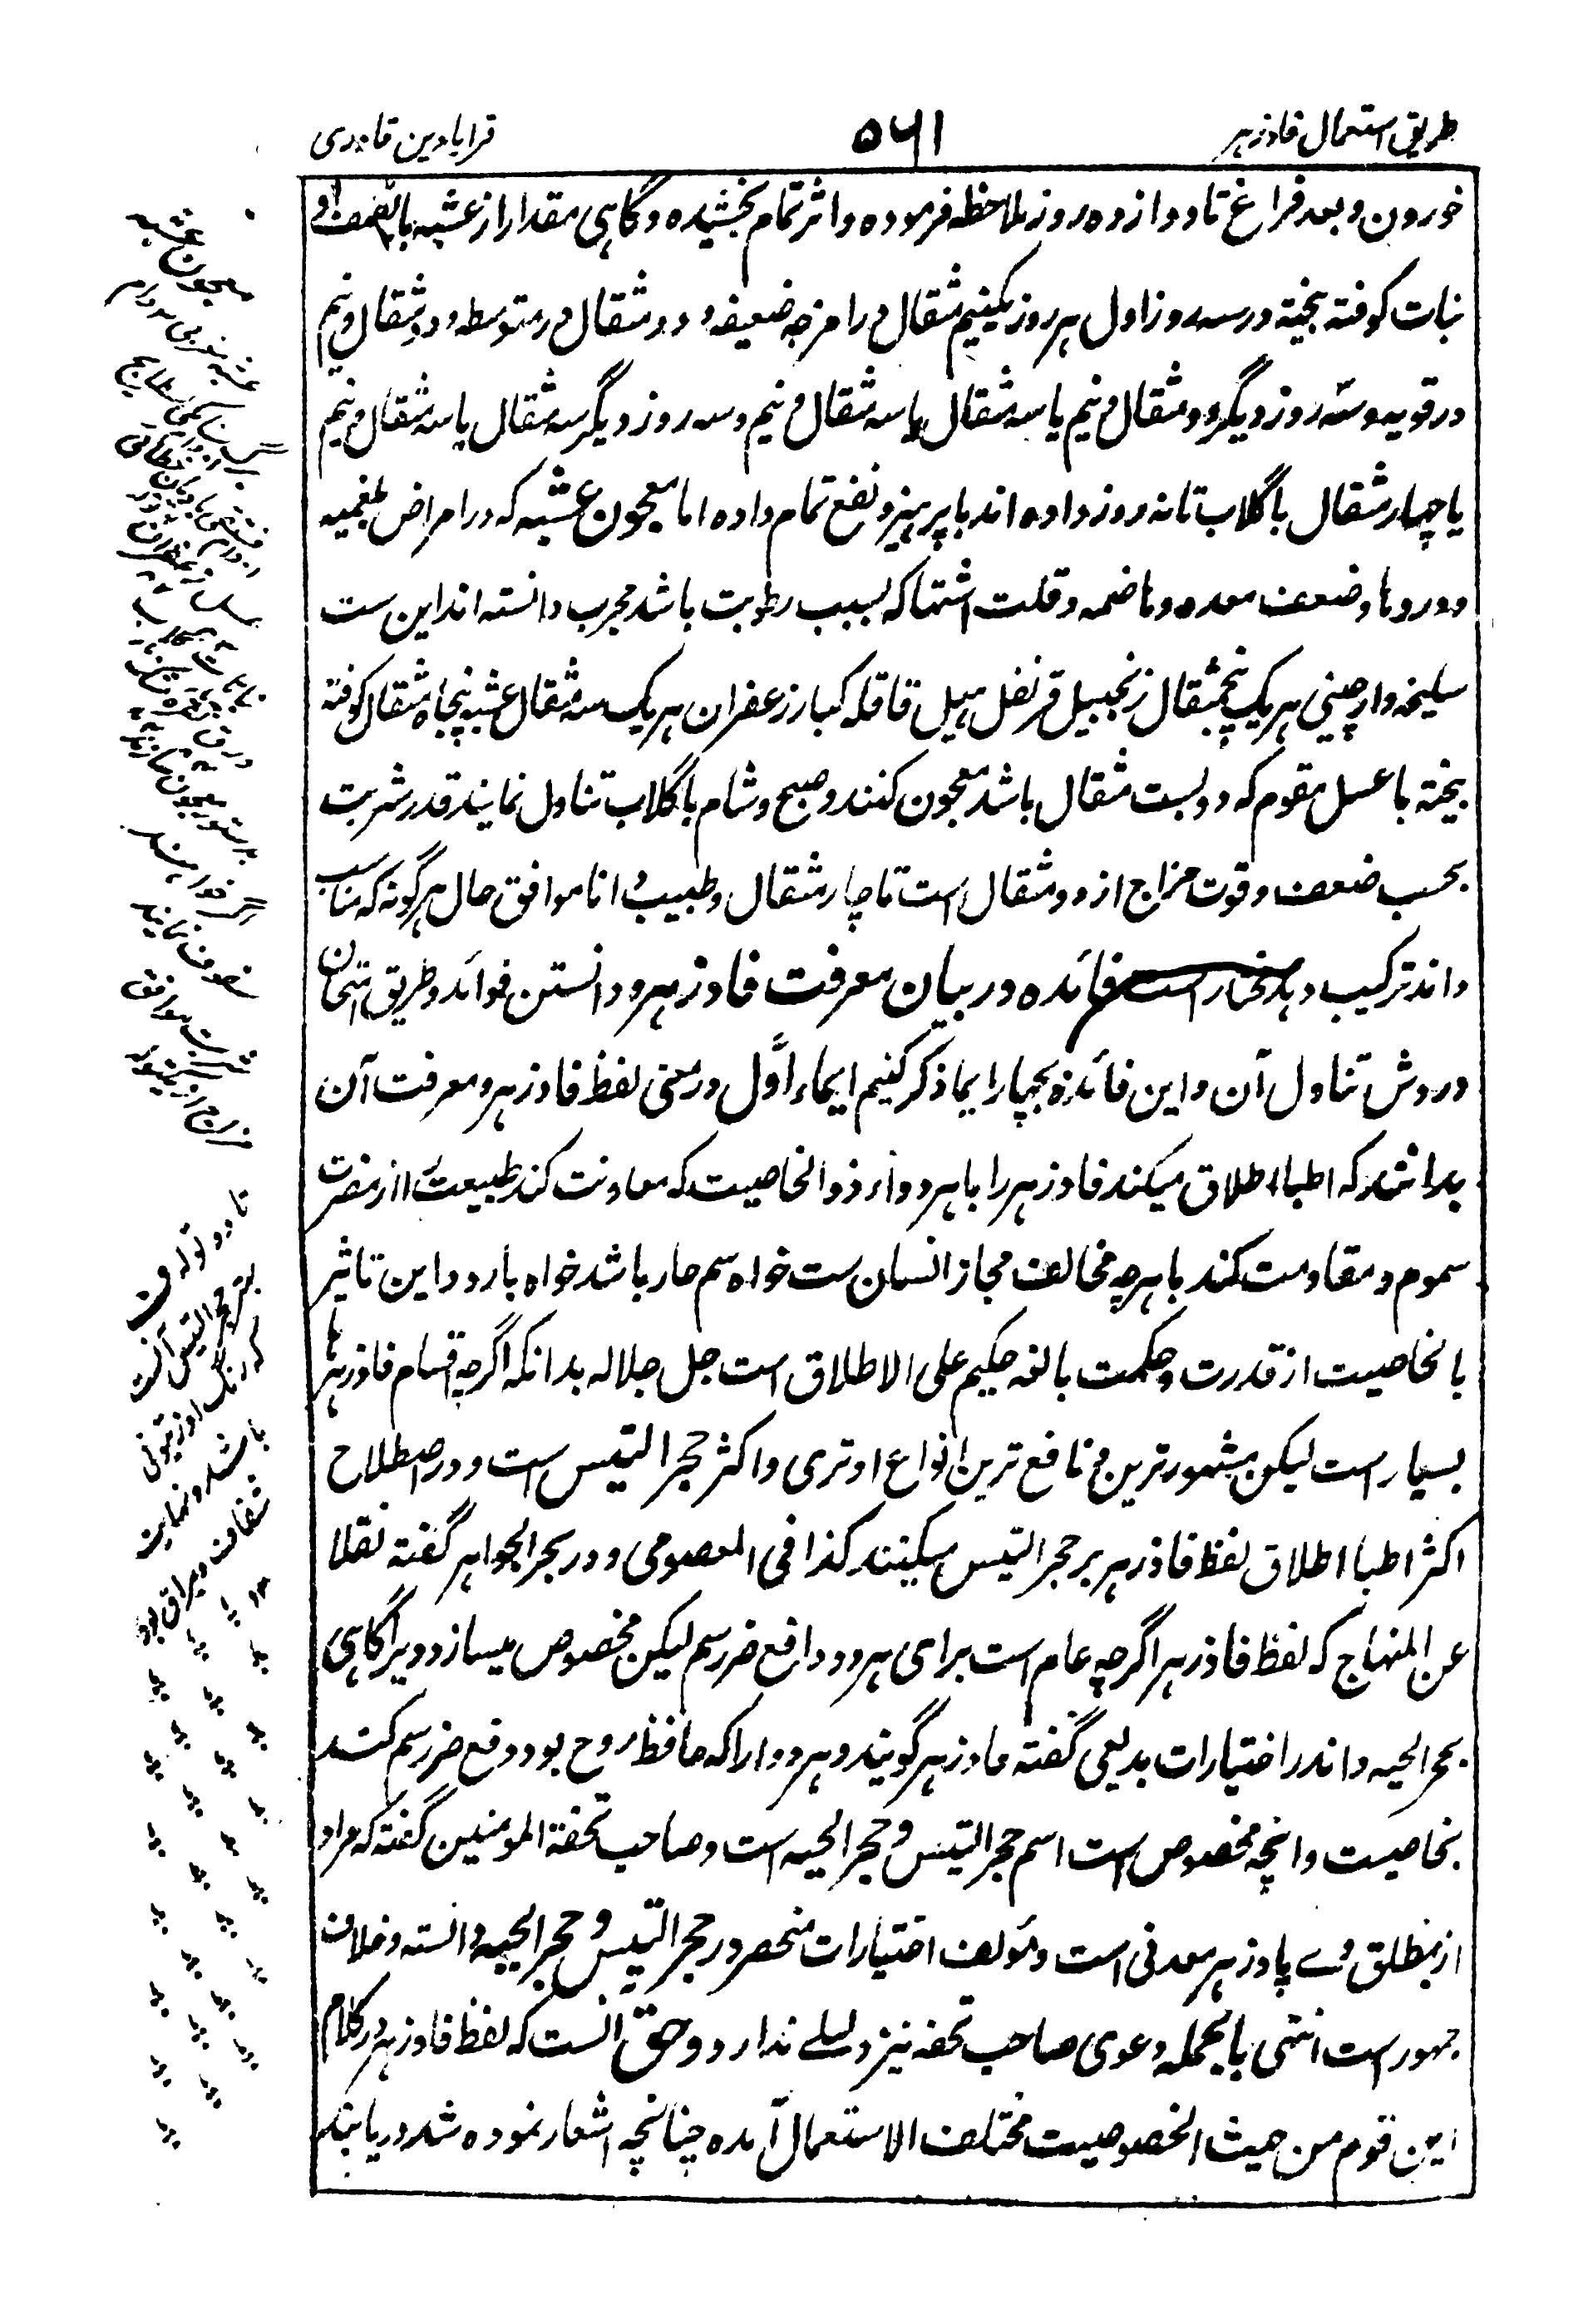 طریق استعمال فادزهر
۵۶۱
قرابادین قادری
خوردن و بعد فراغ تا دوازده روز ملاحظه فرموده و اثر تمام بخشیده و گاهی مقدار از عشبه با نصف او
نبات کوفته بیخته در سه روز اول هر روز یکنیم مثقال در امزجه ضعیفه و دو مثقال در متوسطه و دو مثقال و نیم
در قویه و سه روز دیگر دو مثقال و نیم یا سه مثقال یا سه مثقال و نیم و سه روز دیگر سه مثقال یا سه مثقال و نیم
یا چهار مثقال با گلاب تا نه روز داده اند با پرهیز و نفع تمام داده اما معجون عشبه که در امراض بلغمیه
و دردها و ضعف معده و هاضمه و قلت اشتها که بسبب رطوبت باشد مجرب دانسته اند این ست
سلیخه دارچینی هر یک پنجمثقال زنجبیل قرنفل هیل قاقله کبار زعفران هر یک سه مثقال عشبه پنجاه مثقال کوفته
بیخته با عسل مقوم که دویست مثقال باشد معجون کنند و صبح و شام با گلاب تناول نمایند قدر شربت
بحسب ضعف و قوت مزاج از دو مثقال است تا چار مثقال و طبیب دانا موافق حال هر گونه که مناسب
داند ترکیب دهد مختار است فائده در بیان معرفت فادزهر و دانستن فوائد و طریق امتحان
و روش تناول آن و این فائده بچهار ایما ذکر کنیم ایماء اول در معنی لفظ فادزهر و معرفت آن
بدانند که اطبا اطلاق میکند فادزهر را با هر دواء ذو الخاصیت که معاونت کند طبیعت را از مضرت
سموم و مقاومت کند با هرچه مخالف مجاز انسان ست خواه سم حار باشد خواه بارد و این تاثیر
بالخاصیت از قدرت و حکمت بالغه حکیم علی الاطلاق است جل جلاله بدانکه اگرچه اقسام فادزهرها
بسیار است لیکن مشهور ترین و نافع ترین انواع او تری و اکثر حجر التیس است و در اصطلاح
اکثر اطبا اطلاق لفظ فاذرهر بر حجر التیس میکنند کذا فی المعصومی و در بحر الجواهر گفته نقلا
عن المنهاج که لفظ فاذرهر اگرچه عام است برای هر دو دافع ضرر سم لیکن مخصوص میسازد ویرا گاهی
بحجر الحیه و اندر اختیارات بدیعی گفته فادزهر گویند و هر دوا را که حافظ روح بود و دفع ضرر سم کند
بخاصیت و انچه مخصوص است اسم حجر التیس و حجر الحیه است و صاحب تحفة المومنین گفته که مراد
از مطلق وے پادزهر معدنی است و مولف اختیارات منحصر در حجر التیس و حجر الحیه دانسته و خلاف
جمهور است انتهی بالجمله دعوی صاحب تحفه نیز دلیلے ندارد و حق انست که لفظ فادزهر در کلام
این قوم من حیث الخصوصیت مختلف الاستعمال آمده چنانچه اشعار نموده شد دریابند
معجون عشبه
تا دو توله
بهتر حجر التیس آنست
که رنگ او زیتونی
باشد و نهایت
شفاف و براق بود